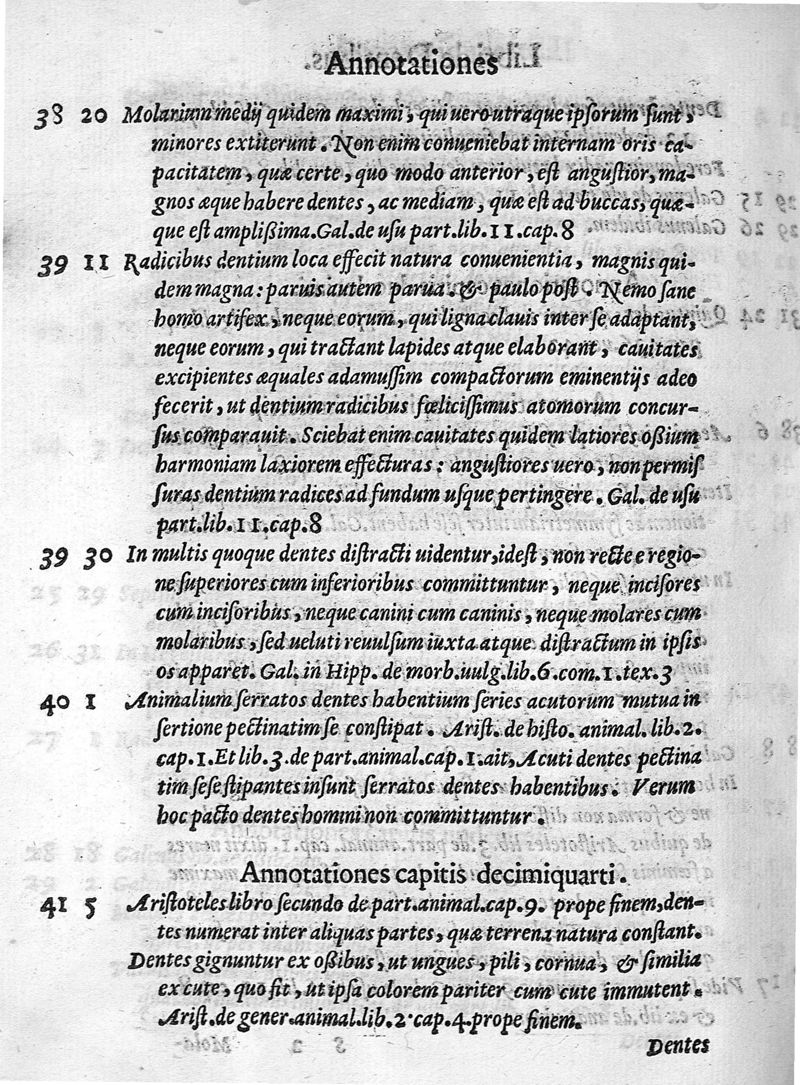 Annotationes
38 20 Molarium medij quidem maximi, qui uero utraque ipsorum sunt,
minores extiterunt. Non enim conueniebat internam oris ca-
pacitatem, quæ certe, quo modo anterior, est angustior, ma-
gnos æque habere dentes, ac mediam, quæ est ad buccas, quæ-
que est amplißima. Gal. de usu part. lib. 11. cap. 8
39 11 Radicibus dentium loca effecit natura conuenientia, magnis qui-
dem magna: paruis autem parua. & paulo post. Nemo sane
homo artifex, neque eorum, qui ligna clauis inter se adaptant,
neque eorum, qui tractant lapides atque elaborant, cauitates
excipientes æquales adamussim compactorum eminentijs adeo
fecerit, ut dentium radicibus fœlicissimus atomorum concur-
sus comparauit. Sciebat enim cauitates quidem latiores oßium
harmoniam laxiorem effecturas: angustiores uero, non permis
suras dentium radices ad fundum usque pertingere. Gal. de usu
part. lib. 11. cap. 8
39 30 In multis quoque dentes distracti uidentur, idest, non recte e regio-
ne superiores cum inferioribus committuntur, neque incisores
cum incisoribus, neque canini cum caninis, neque molares cum
molaribus, sed ueluti reuulsum iuxta atque distractum in ipsis
os apparet. Gal. in Hipp. de morb. uulg. lib. 6. com. 1. tex. 3
40 1 Animalium serratos dentes habentium series acutorum mutua in
sertione pectinatim se constipat. Arist. de histo. animal. lib. 2.
cap. 1. Et lib. 3. de part. animal. cap. 1. ait, Acuti dentes pectina
tim sese stipantes insunt serratos dentes habentibus. Verum
hoc pacto dentes homini non committuntur.
Annotationes capitis decimiquarti.
41 5 Aristoteles libro secundo de part. animal. cap. 9. prope finem, den-
tes numerat inter aliquas partes, quæ terrena natura constant.
Dentes gignuntur ex oßibus, ut ungues, pili, cornua, & similia
ex cute, quo fit, ut ipsa colorem pariter cum cute immutent.
Arist. de gener. animal. lib. 2. cap. 4. prope finem.
Dentes